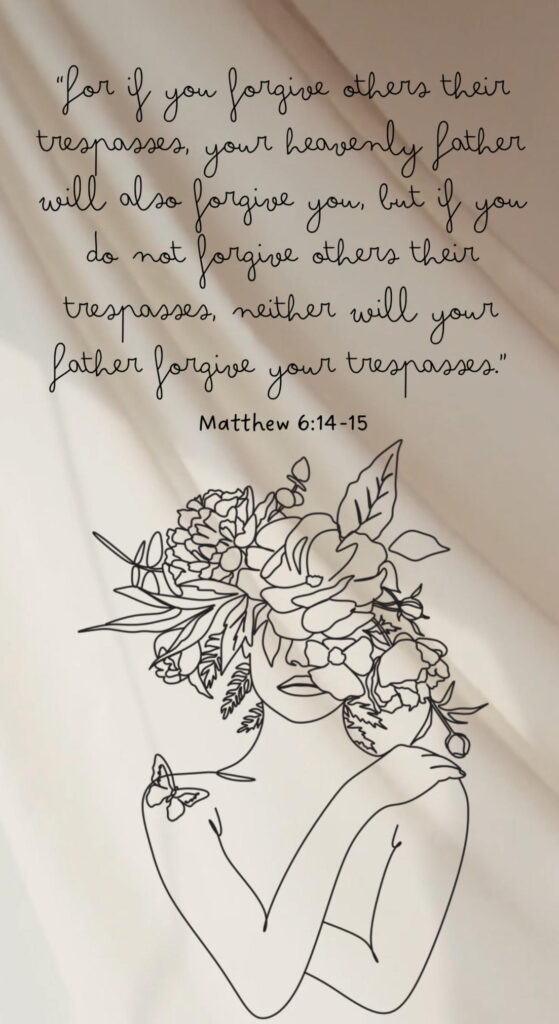 "For if you forgive others their
trespasses, your heavenly father
will also forgive you, but if you
do not forgive others their
trespasses, neither will your
father forgive your trespasses."
Matthew 6:14-15